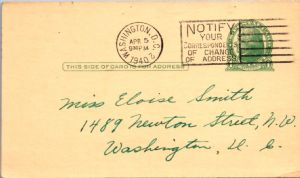 WASHINGTON, D.C.
APR 5
9 PM
1940
2
NOTIFY
YOUR
CORRESPONDENTS
OF CHANGE
OF ADDRESS
THIS SIDE OF CARD IS FOR ADDRESS
Miss Eloise Smith
1489 Newton Street, N.W.
Washington, D. C.